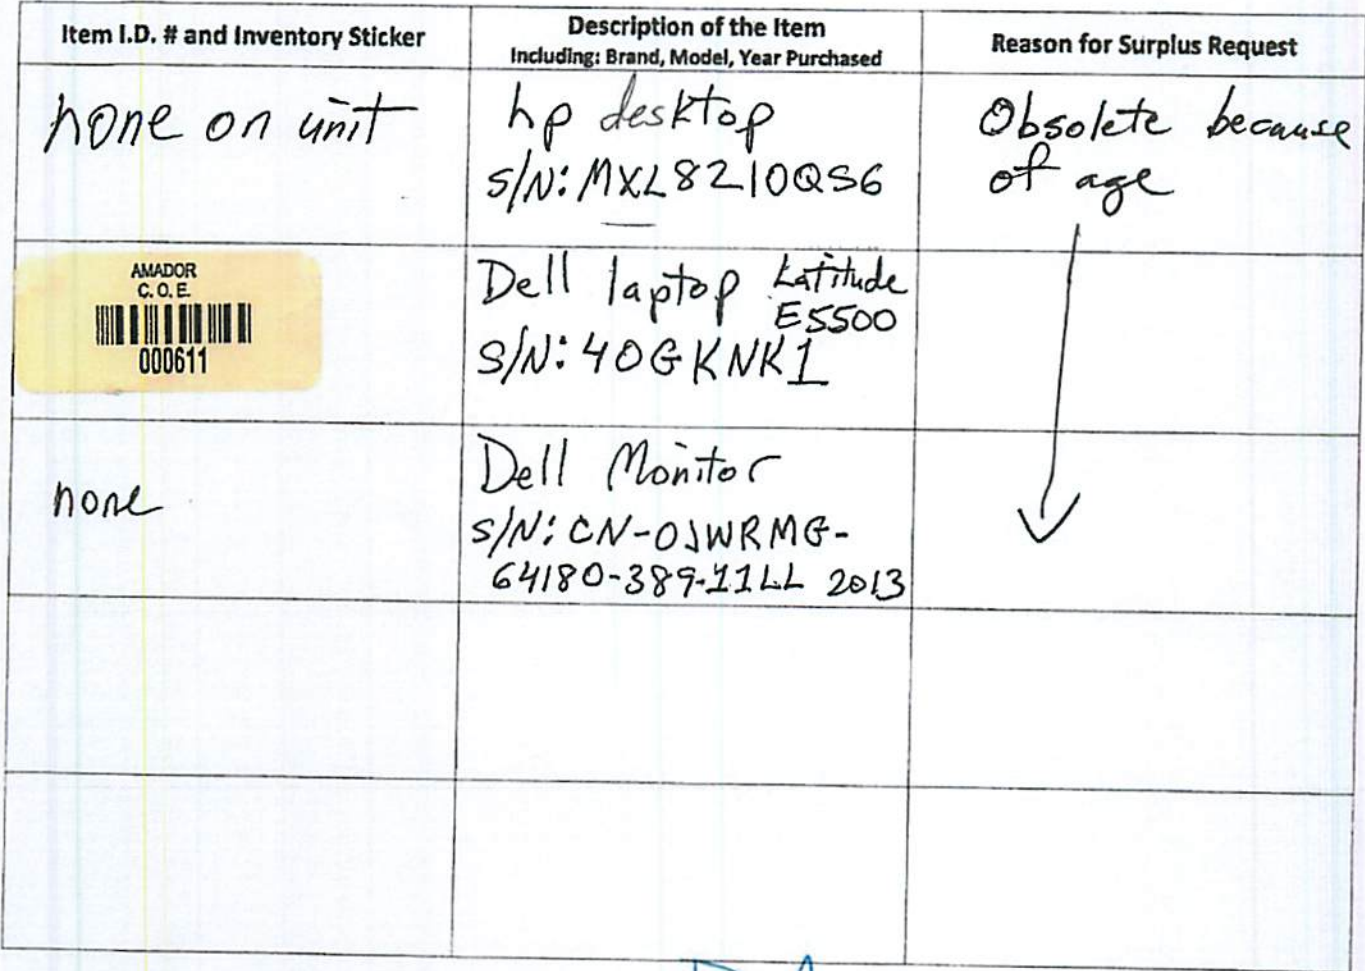 Item I.D. # and Inventory Sticker
Description of the Item
Including: Brand, Model, Year Purchased
Reason for Surplus Request
none on unit
hp desktop
S/N: MXL8210QS6
Obsolete because
of age
AMADOR
C.O.E.
000611
Dell laptop Latitude
E5500
S/N: 40GKNK1
none
Dell Monitor
S/N: CN-0JWRMG-
64180-389-11LL 2013